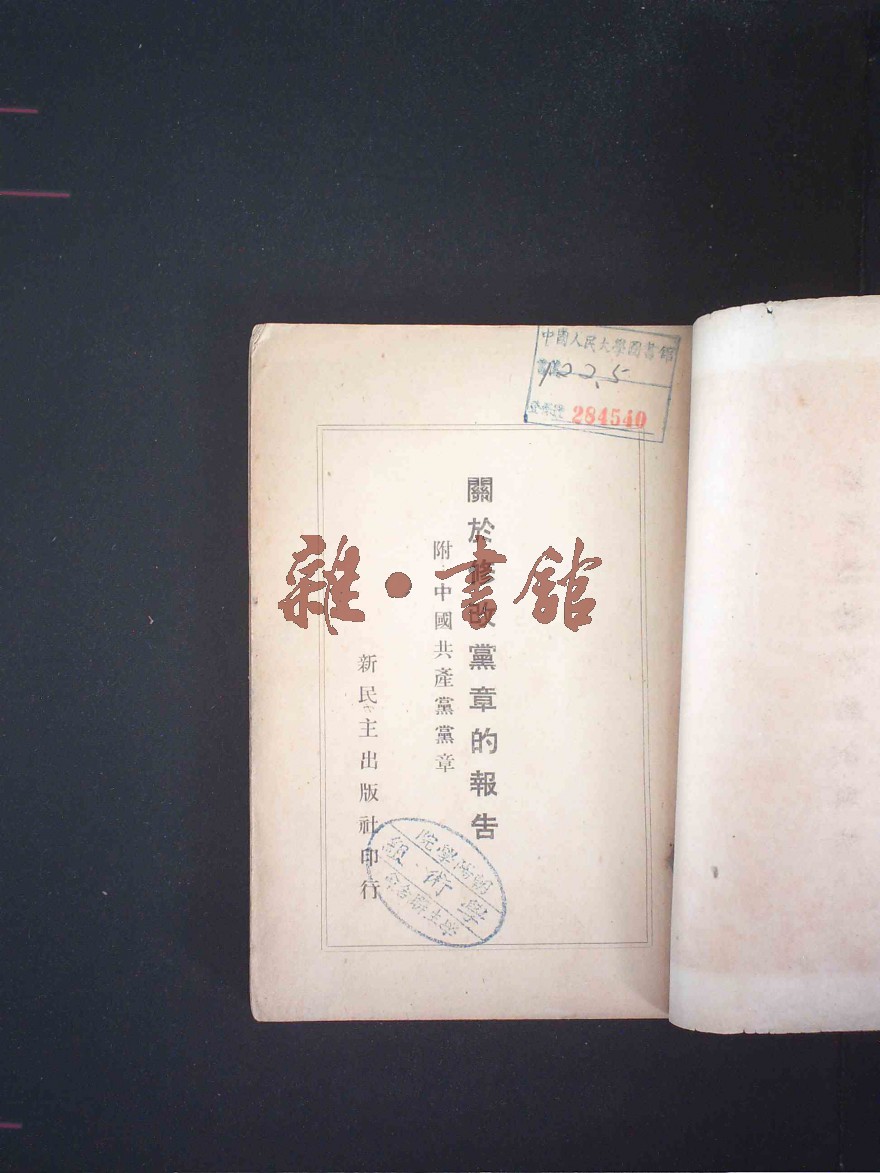 中國人民大學圖書館
122.5
284540
關於修改黨章的報告
附：中國共產黨黨章
新民主出版社印行
雜·書館
學術組